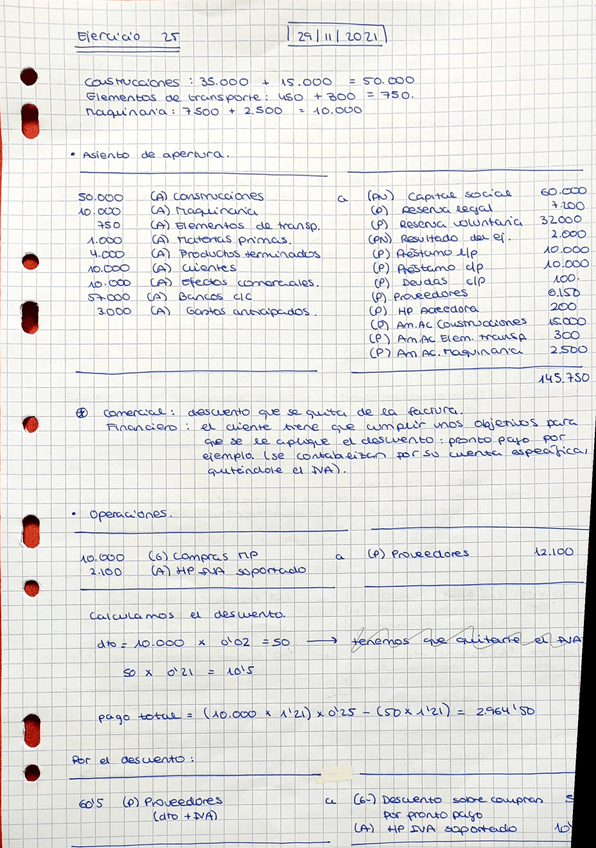 Ejercicio 25 29/11/2021
Construcciones: 35.000 + 15.000 = 50.000
Elementos de transporte: 450 + 300 = 750.
Maquinaria: 7500 + 2.500 = 10.000
• Asiento de apertura.
50.000 (A) Construcciones a (PN) Capital social 60.000
10.000 (A) Maquinaria (P) Reserva legal 7.200
750 (A) Elementos de transp. (P) Reserva voluntaria 32000
1.000 (A) Materias primas. (PN) Resultado del ej. 2.000
4.000 (A) Productos terminados (P) Préstamo l/p 10.000
10.000 (A) Clientes (P) Préstamo c/p 10.000
10.000 (A) Efectos comerciales. (P) Deudas c/p 100.
57.000 (A) Bancos c/c (P) Proveedores 6.150
3000 (A) Gastos anticipados. (P) HP Acreedora 200
(P) Am.Ac Construcciones 15.000
(P) Am.Ac. Elem. transp 300
(P) Am.Ac. Maquinaria 2500
145.750
* Comercial: descuento que se quita de la factura.
Financiero: el cliente tiene que cumplir unos objetivos para
que se le aplique el descuento: pronto pago por
ejemplo. (se contabilizan por su cuenta específica,
quitándole el IVA).
• Operaciones.
10.000 (G) Compras MP a (P) Proveedores 12.100
2.100 (A) HP IVA soportado
Calculamos el descuento.
dto = 10.000 x 0'02 = 50 → tenemos que quitarle el IVA
50 x 0'21 = 10'5
pago total = (10.000 x 1'21) x 0'25 - (50 x 1'21) = 2.964'50
Por el descuento:
60'5 (P) Proveedores a (G-) Descuento sobre compras
(dto + IVA) por pronto pago
(A) HP IVA soportado 10'